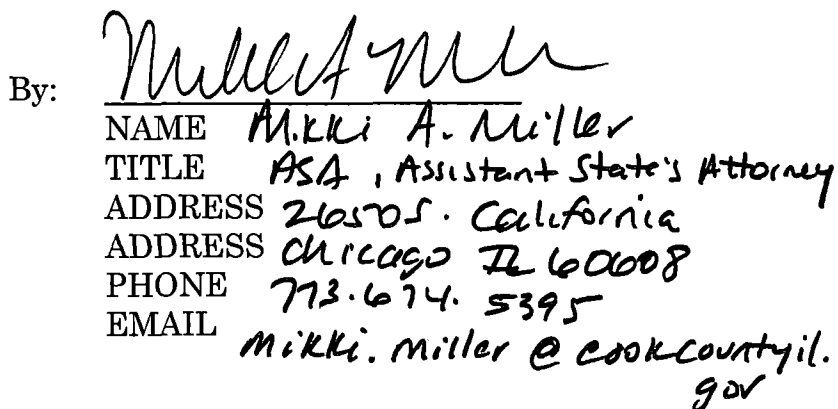 By:
NAME Mikki A. Miller
TITLE ASA, Assistant State's Attorney
ADDRESS 2650 S. California
ADDRESS Chicago IL 60608
PHONE 773.674.5395
EMAIL
mikki.miller@cookcountyil.
gov